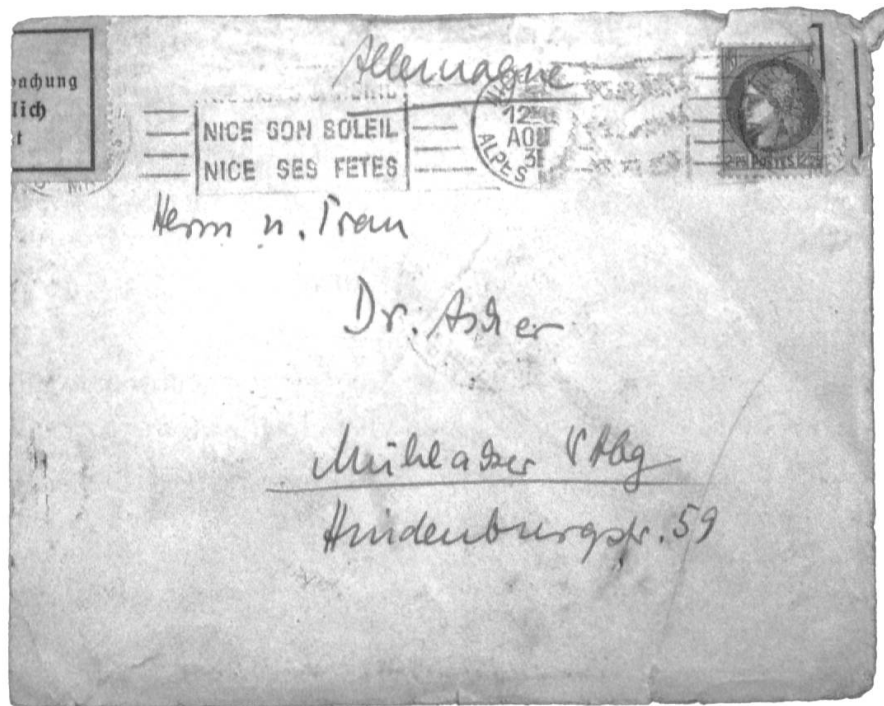 Allemagne
bachung
lich
t
NICE SON SOLEIL
NICE SES FETES
12
AOU
3
ALPES
POSTES
Herrn u. Frau
Dr. Ascher
Mühlacker Wttbg
Hindenburgstr. 59